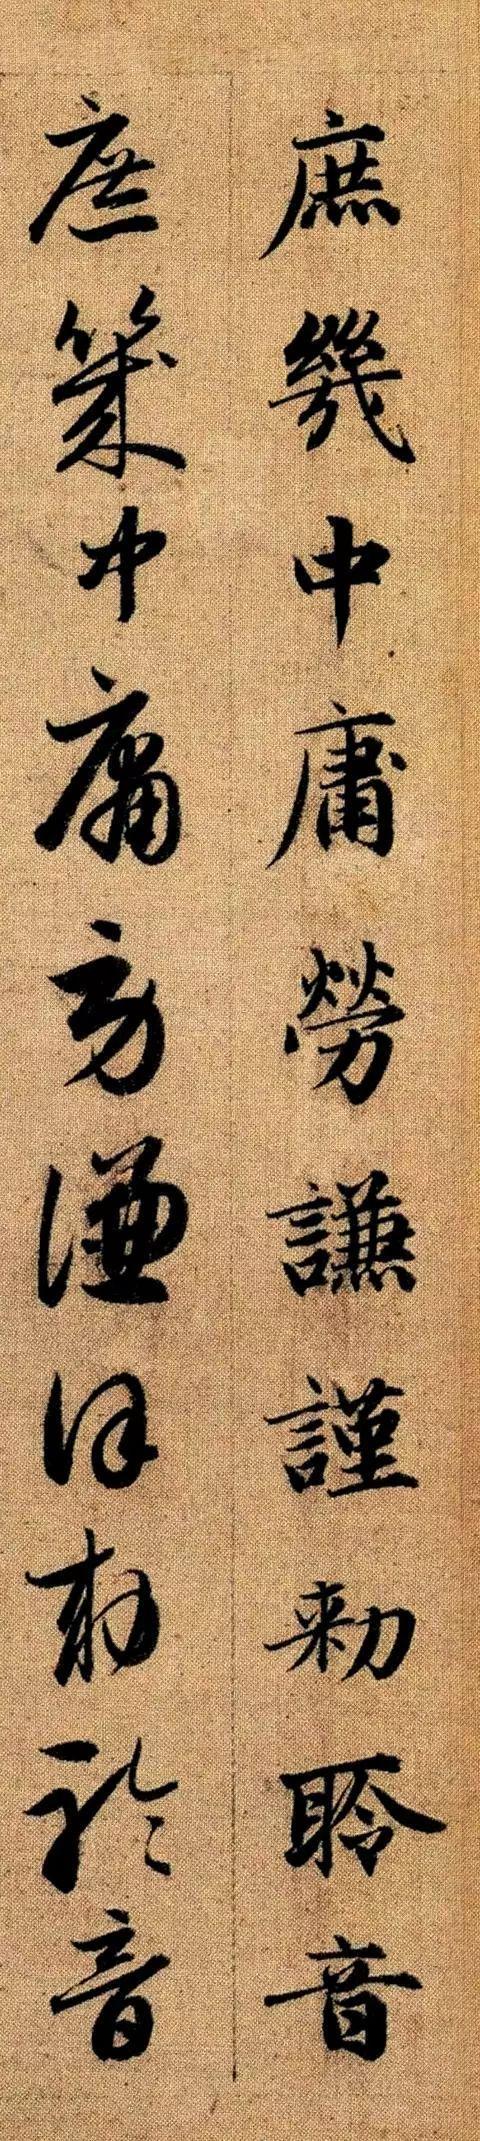 庶幾中庸勞謙謹勑聆音
庶幾中庸勞謙謹勑聆音